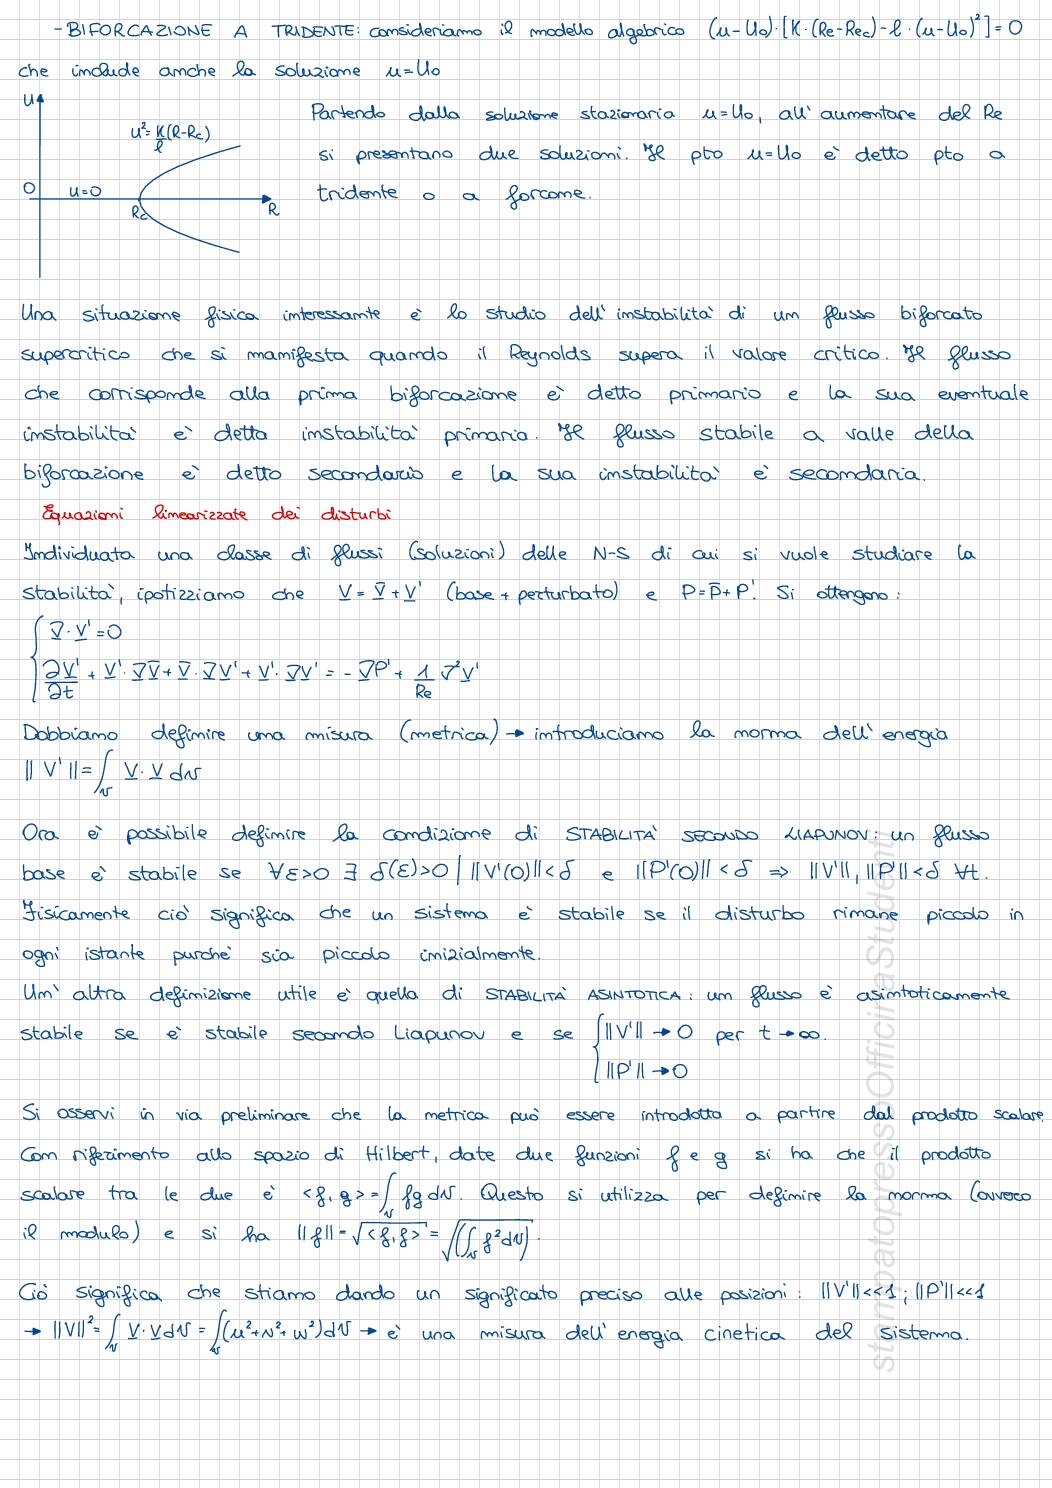 - BIFORCAZIONE A TRIDENTE: consideriamo il modello algebrico (u-U₀)·[K·(Re-Rec)-l·(u-U₀)²]=0
che include anche la soluzione u=U₀
U
u²=K/l(R-Rc)
0
u=0
Rc
R
Partendo dalla soluzione stazionaria u=U₀, all'aumentare del Re
si presentano due soluzioni. Il pto u=U₀ è detto pto a
tridente o a forcone.
Una situazione fisica interessante è lo studio dell'instabilità di un flusso biforcato
supercritico che si manifesta quando il Reynolds supera il valore critico. Il flusso
che corrisponde alla prima biforcazione è detto primario e la sua eventuale
instabilità è detta instabilità primaria. Il flusso stabile a valle della
biforcazione è detto secondario e la sua instabilità è secondaria.
Equazioni linearizzate dei disturbi
Individuata una classe di flussi (soluzioni) delle N-S di cui si vuole studiare la
stabilità, ipotizziamo che V = V̅ + V' (base + perturbato) e P = P̅ + P'. Si ottengono:
∇·V'=0
∂V'/∂t + V'·∇V̅ + V̅·∇V' + V'·∇V' = -∇P' + 1/Re ∇²V'
Dobbiamo definire una misura (metrica) → introduciamo la norma dell'energia
||V'|| = ∫v V·V dv
Ora è possibile definire la condizione di STABILITÀ SECONDO LIAPUNOV: un flusso
base è stabile se ∀ε>0 ∃ δ(ε)>0 | ||V'(0)||<δ e ||P'(0)||<δ ⇒ ||V'||, ||P'||<δ ∀t.
Fisicamente ciò significa che un sistema è stabile se il disturbo rimane piccolo in
ogni istante purchè sia piccolo inizialmente.
Un'altra definizione utile è quella di STABILITÀ ASINTOTICA: un flusso è asintoticamente
stabile se è stabile secondo Liapunov e se ||V'|| → 0 per t→∞.
||P'|| → 0
Si osservi in via preliminare che la metrica può essere introdotta a partire dal prodotto scalare.
Con riferimento allo spazio di Hilbert, date due funzioni f e g si ha che il prodotto
scalare tra le due è <f,g> = ∫v fg dv. Questo si utilizza per definire la norma (ovvero
il modulo) e si ha ||f|| = √<f,f> = √(∫v f² dv).
Ciò significa che stiamo dando un significato preciso alle posizioni: ||V'||<<1; ||P'||<<1
→ ||V||² = ∫v V·V dv = ∫v (u²+v²+w²) dv → è una misura dell'energia cinetica del sistema.
stampatopressoOfficinaStudenti